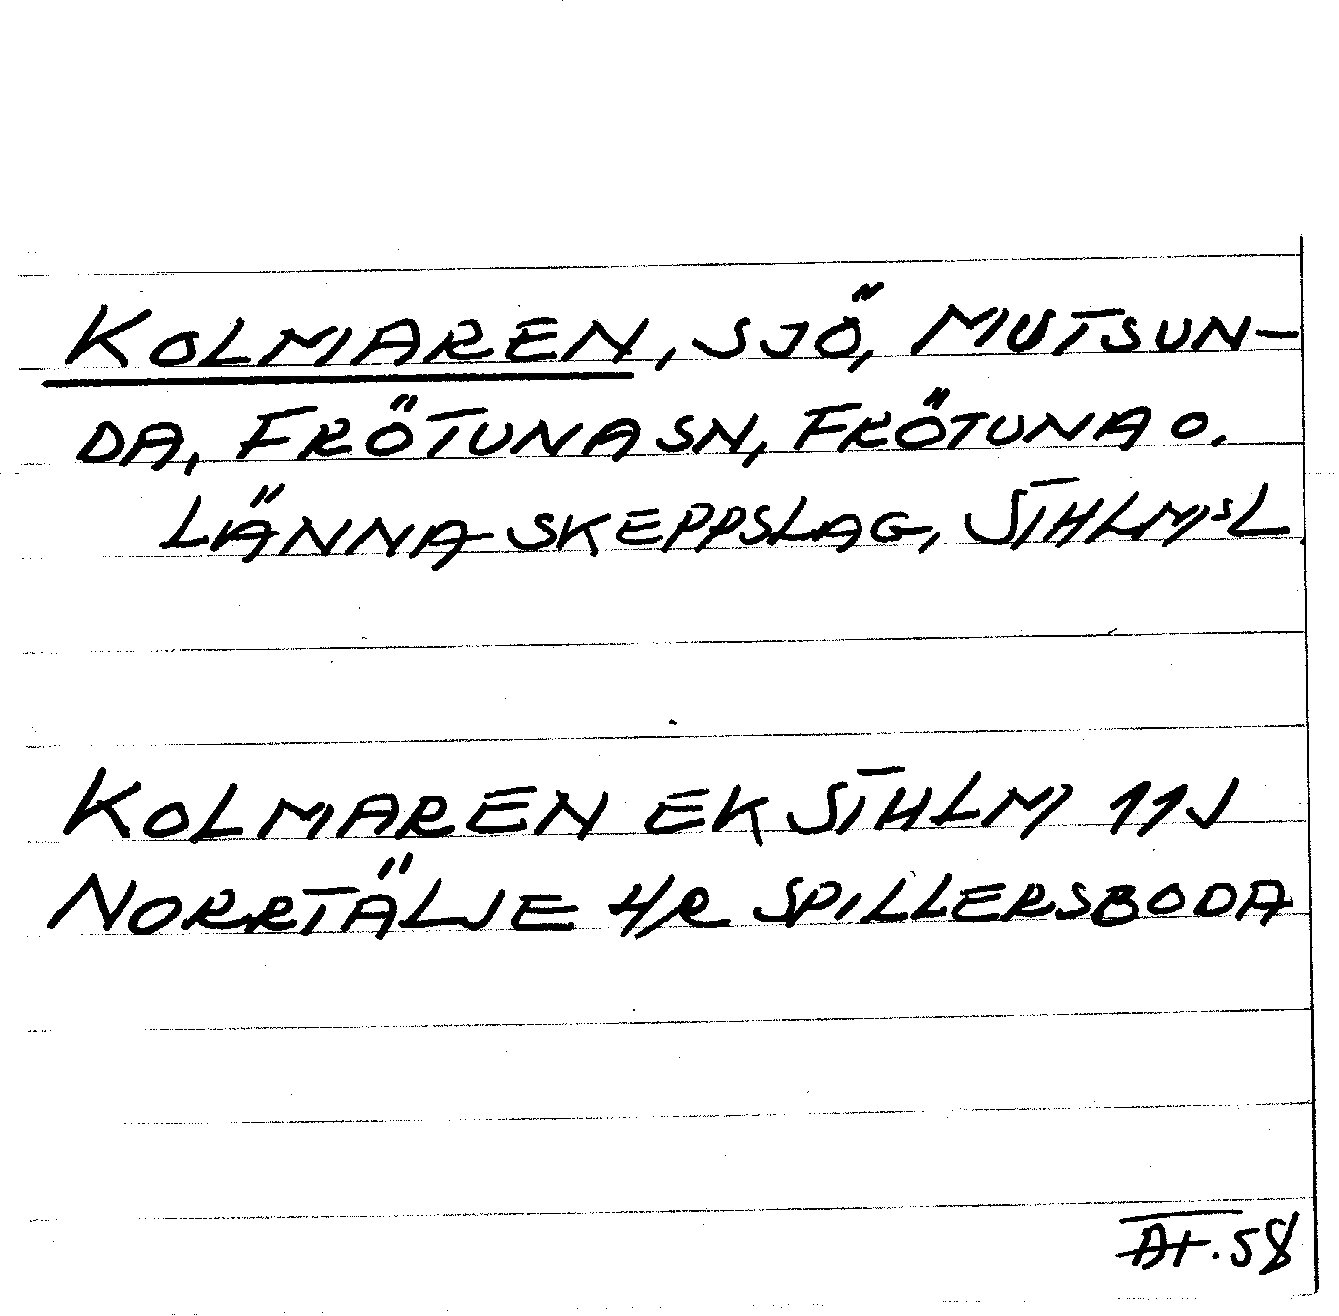 KOLMAREN, SJÖ, MUTSUN-
DA, FRÖTUNA SN, FRÖTUNA O.
LÄNNA SKEPPSLAG, STHLMSL
KOLMAREN EK STHLM 11J
NORRTÄLJE 4/R SPILLERSBODA
58